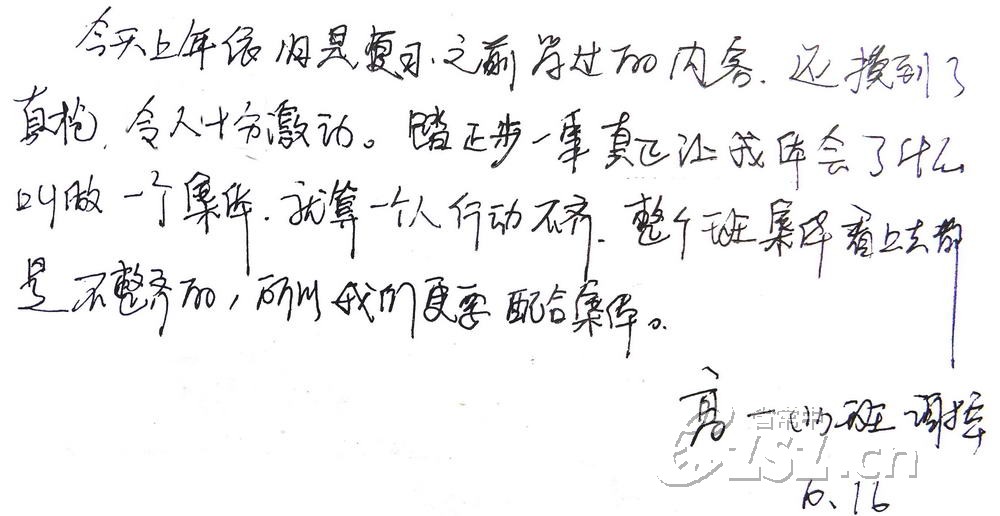 今天上午依旧是复习之前学过的内容.还摸到了
真枪,令人十分激动。踏正步一事真正让我体会了什么
叫做一个集体.就算一个人行动不齐.整个班集体看上去都
是不整齐的,所以我们更要配合集体。
高一(1)班
6.16
ZSZ.cn